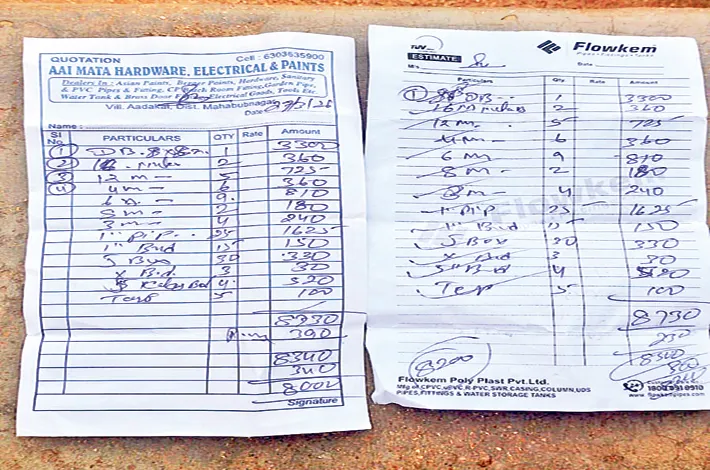 QUOTATION Cell : 6303535900
AAI MATA HARDWARE, ELECTRICAL & PAINTS
Dealers In : Asian Paints, Berger Paints, Hardware, Sanitary
& PVC Pipes & Fitting, CP Bath Room Fitting, Garden Pipe,
Water Tank & Brass Door Electrical Goods, Tools Etc.
Vill. Aadakal, Dist. Mahabubnagar
Date
Name :
Sl No. PARTICULARS QTY Rate Amount
1 D.B. 1 3300
2 16 2 360
3 12 m 5 725
4 4 m 6 360
6 m 9 810
8 m 2 180
3 m 4 240
1" pip 25 1625
1" Bnd 15 150
J Box 30 330
x B.d 3 30
4 520
Tap 5 100
390
8340
340
8000
Signature
ESTIMATE
M/s
Flowkem
Pipes • Fittings • Tanks
Date
Particulars Qty Rate Amount
1 DB 1 3300
16 2 360
12 m 5 725
4 m 6 360
6 m 9 810
8 m 2 180
3 m 4 240
1" pip 25 1625
1" Bnd 15 150
J Box 30 330
x Bnd 3 30
4
Tap 5 100
8730
8200
Flowkem Poly Plast Pvt.Ltd.
Mfg of.CPVC,uPVC,R-PVC,SWR,CASING,COLUMN,UDS
PIPES,FITTINGS & WATER STORAGE TANKS
1800 891 0910
www.flowkempipes.com